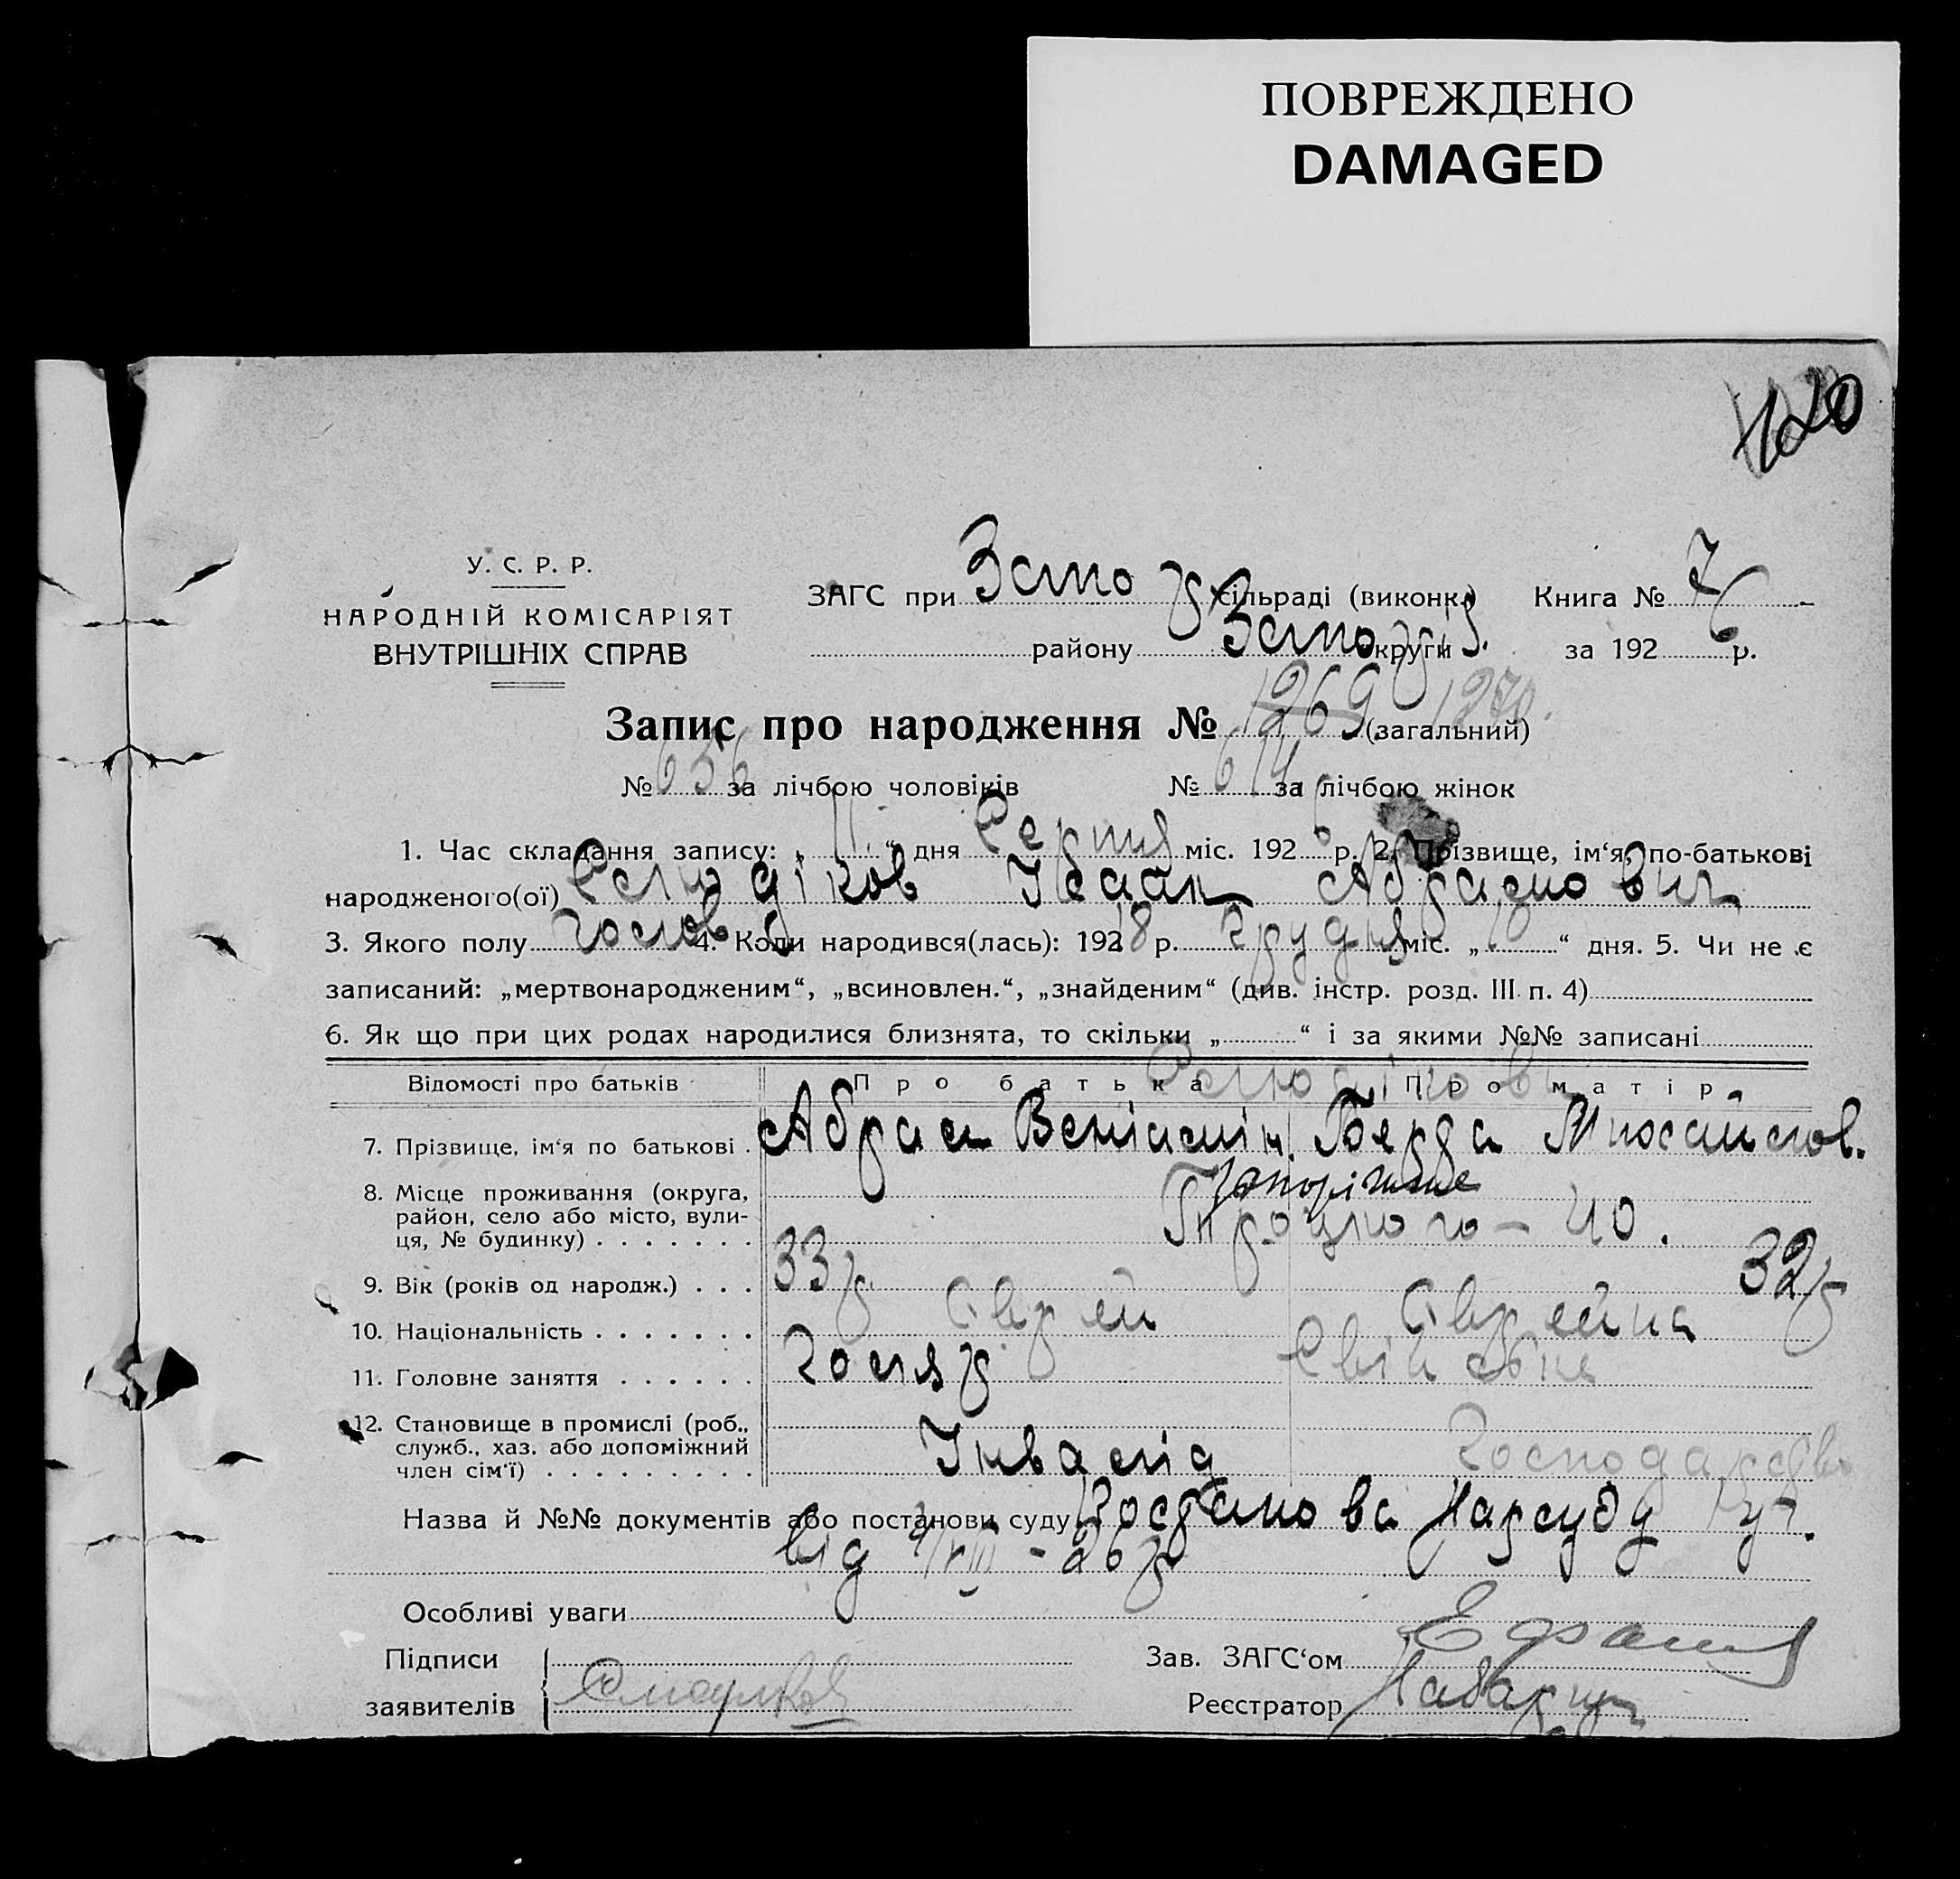 ПОВРЕЖДЕНО
DAMAGED
120
У. С. Р. Р.
НАРОДНІЙ КОМІСАРІЯТ
ВНУТРІШНІХ СПРАВ
ЗАГС при Запо сільраді (виконк.) Книга № 7
району Запоріз. округи за 1926 р.
Запис про народження № 1269 1270. (загальний)
№ 656 за лічбою чоловіків № 614 за лічбою жінок
1. Час складання запису: „11“ дня Серпня міс. 1926 р. 2. Прізвище, ім‘я, по-батькові
народженого(ої) Ісаак Абрамович
3. Якого полу чолов 4. Коли народився(лась): 1918 р. Грудня міс. „10“ дня. 5. Чи не є
записаний: „мертвонародженим“, „всиновлен.“, „знайденим“ (див. інстр. розд. III п. 4)
6. Як що при цих родах народилися близнята, то скільки „ “ і за якими №№ записані
Відомості про батьків Про батька Про матір
7. Прізвище, ім‘я по батькові . Абрам Веніамін. Берта Михайлов.
8. Місце проживання (округа, Запоріжже
район, село або місто, вули- Троцького – 40.
ця, № будинку) . . . . . . .
9. Вік (років од народж.) . . . 33 р 32 р
10. Національність . . . . . . . Єврей Єврейка
11. Головне заняття . . . . . . Столяр
12. Становище в промислі (роб.,
служб., хаз. або допоміжний
член сім‘ї) . . . . . . . . . Інвалід Господарство
Назва й №№ документів або постанови суду Постанова Нарсуду
від 4/VIII – 26 р
Особливі уваги
Підписи Зав. ЗАГС‘ом
заявителів Реєстратор